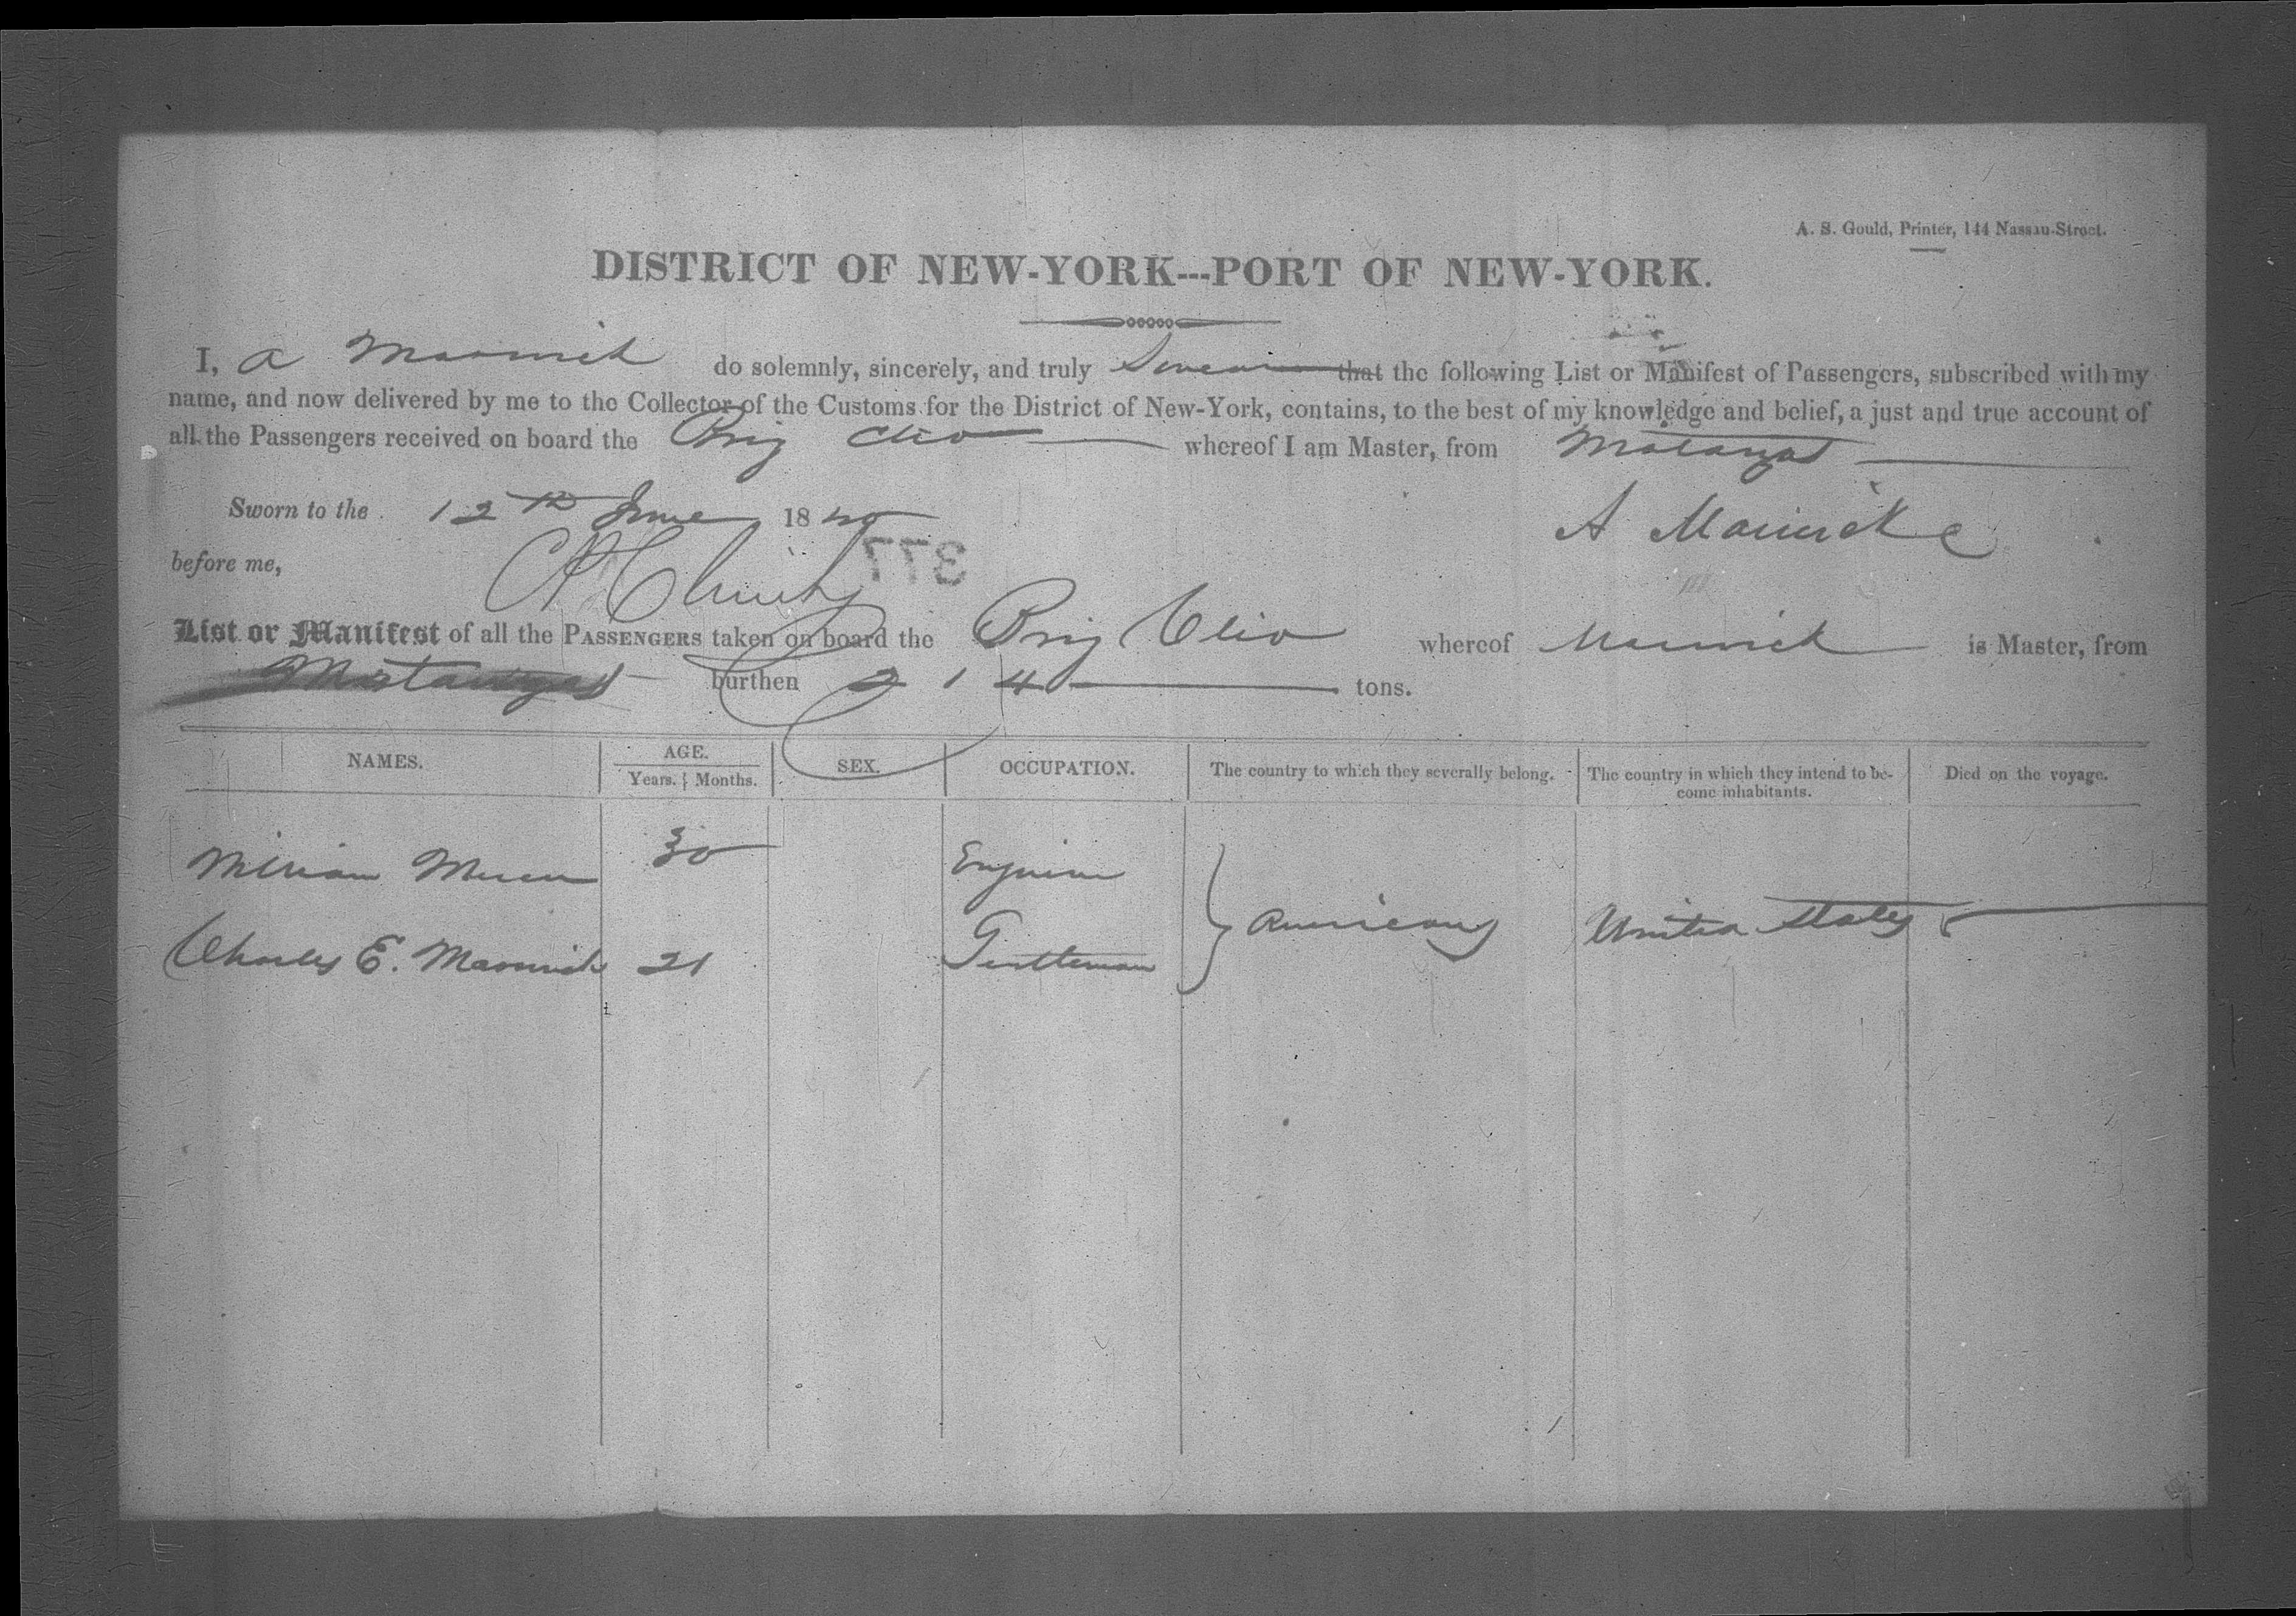 A. S. Gould, Printer, 144 Nassau-Street.
DISTRICT OF NEW-YORK---PORT OF NEW-YORK.
I, A do solemnly, sincerely, and truly Swear that the following List or Manifest of Passengers, subscribed with my
name, and now delivered by me to the Collector of the Customs for the District of New-York, contains, to the best of my knowledge and belief, a just and true account of
all the Passengers received on board the Brig Clio whereof I am Master, from Matanzas
Sworn to the 12th June 1840
A
before me,
377
List or Manifest of all the PASSENGERS taken on board the Brig Clio whereof is Master, from
Matanzas burthen 214 tons.
NAMES. AGE. SEX. OCCUPATION. The country to which they severally belong. The country in which they intend to be- Died on the voyage.
Years. Months. come inhabitants.
30 
Charles E. 21 Gentleman Americans United States